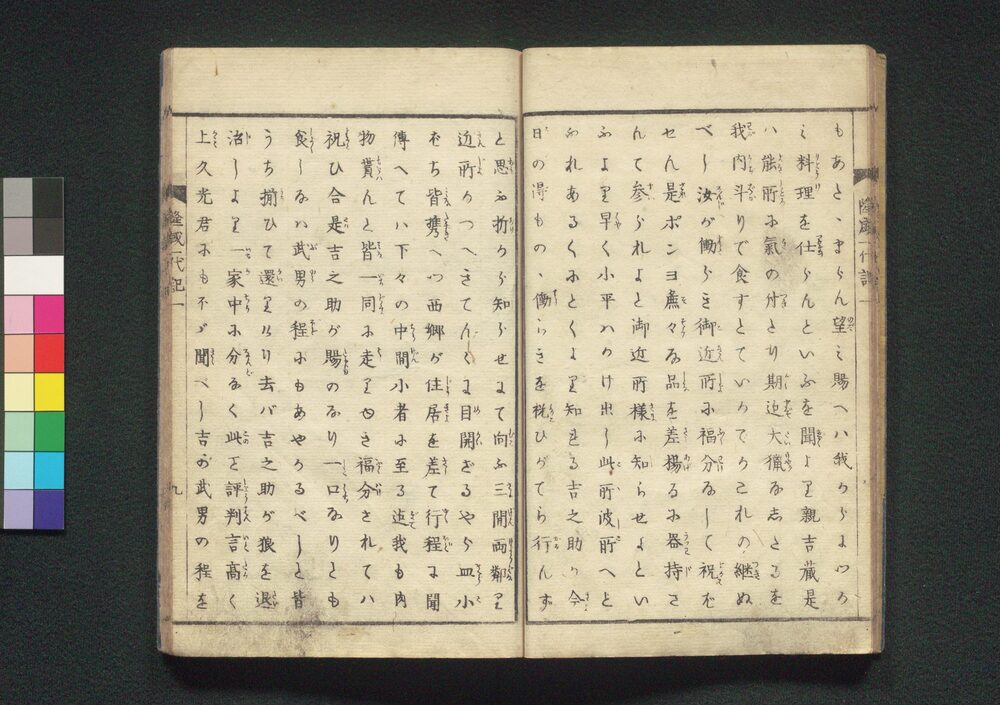 もあとゝまらん望み賜へハ我からよりつか
ミ料理を仕らんといふを聞より親吉蔵是
ハ能所に氣の付たり期迄大獵なしたるを
我内斗りで食すとていかでかこれの継ぬ
べし汝が働らき御近所に福分なして祝ば
せん是ポンヨ麁々な品を差揚るに器持さ
んて参られよと御近所様に知らせよとい
ふより早く小平ハかけ出し此所彼所へと
ふれあるくにとくより知れる吉之助が今
日の得ものゝ働らきを祝ひがてら行んず
と思ふ折から知らせにて向ふ三間両鄰り
近所のつへきてん〴〵に目開ざるやら皿小
ばち皆携へつ西郷が住居を差て行程に聞
傳へてハ下々の中間小者に至る迄我も肉
物貰んと皆一同に走りゆき福分されてハ
祝ひ合是吉之助が賜のなり一口なりとも
食しなバ武男の程にもあやかるべしと皆
うち揃ひて還りけり去バ吉之助が狼を退
治しより一家中に分なく此を評判言高く
上久光君にも不ゞ聞へし吉が武男の程を
隆盛一代記一
九